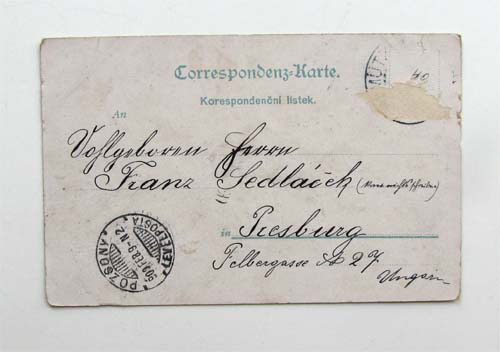 Correspondenz-Karte.
Korespondenční lístek.
An
Wohlgeboren Herrn
Franz Sedláček
in Presburg
Felbergasse № 27
Ungarn
POZSONY
LEVELPOSTA